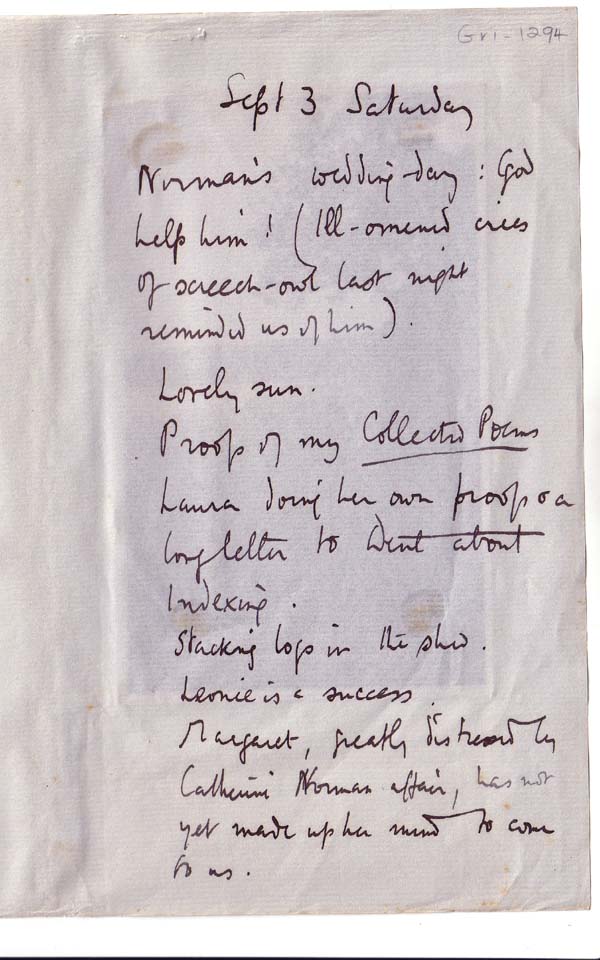 Gri-1294
Sept 3 Saturday
Norman's wedding-day: God
help him! (Ill-omened cries
of screech-owl last night
reminded us of him).
Lovely sun.
Proofs of my Collected Poems
Laura doing her own proofs & a
long letter to Dent about
Indexing.
Stacking logs in the shed.
Leonie is a success.
Margaret, greatly distressed by
Catherine Norman affair, has not
yet made up her mind to come
to us.